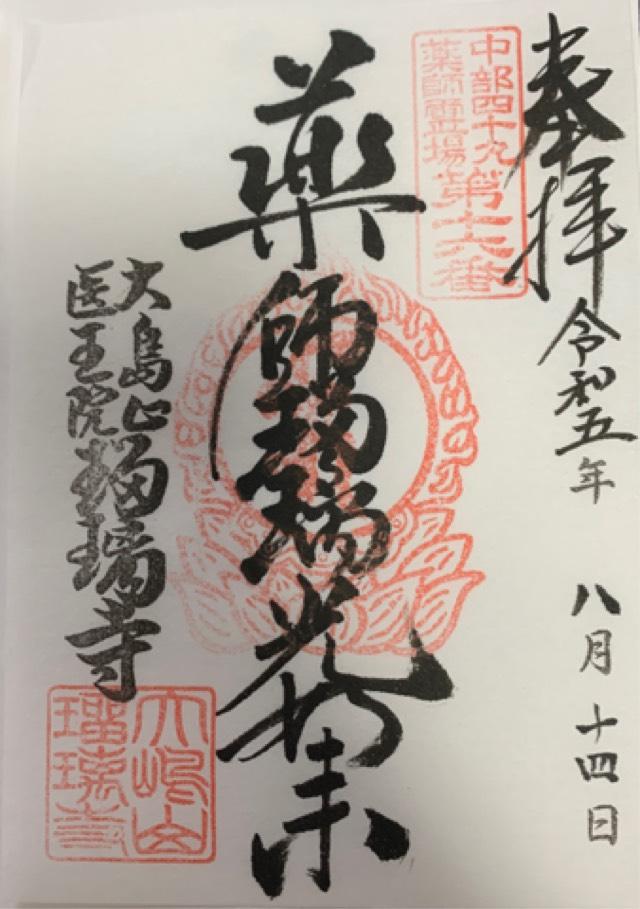 奉拝
令和五年
八月十四日
中部四十九
薬師霊場
第十六番
薬師瑠璃光如来
大島山
医王院
瑠璃寺
大嶋山
瑠璃寺